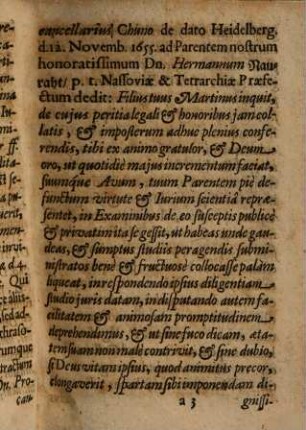 cancellarius Chuno de dato Heidelberg,
d. 12. Novemb. 1655. ad Parentem nostrum
honoratissimum Dn. Hermannum Nau-
raht/ p. t. Nassoviæ & Tetrarchiæ Præfe-
ctum dedit: Filius tuus Martinus inquit,
de cujus peritia legali & honoribus jam col-
latis, & imposterum adhuc plenius confe-
rendis, tibi ex animo gratulor, & Deum
oro, ut quotidiè majus incrementum faciat,
suumque Avum, tuum Parentem piè de-
functum virtute & Iurium scientiâ repræ-
sentet, in Examinibus de eo susceptis publicè
& privatim ita se gessit, ut habeas unde gau-
deas, & sumptus studiis peragendis submi-
nistratos benè & fructuosè collocasse palàm
liqueat, in respondendo ipsius diligentiam
studio juris datam, in disputando autem fa-
cilitatem & animosam promptitudinem
deprehendimus, & ut sine fuco dicam, æta-
tem suam non malè contrivit, & sine dubio,
si Deus vitam ipsius, quod animitùs precor,
elongaverit, spartam sibi imponendam di-
a 3 gnissi-
Dn. Pro-
can-